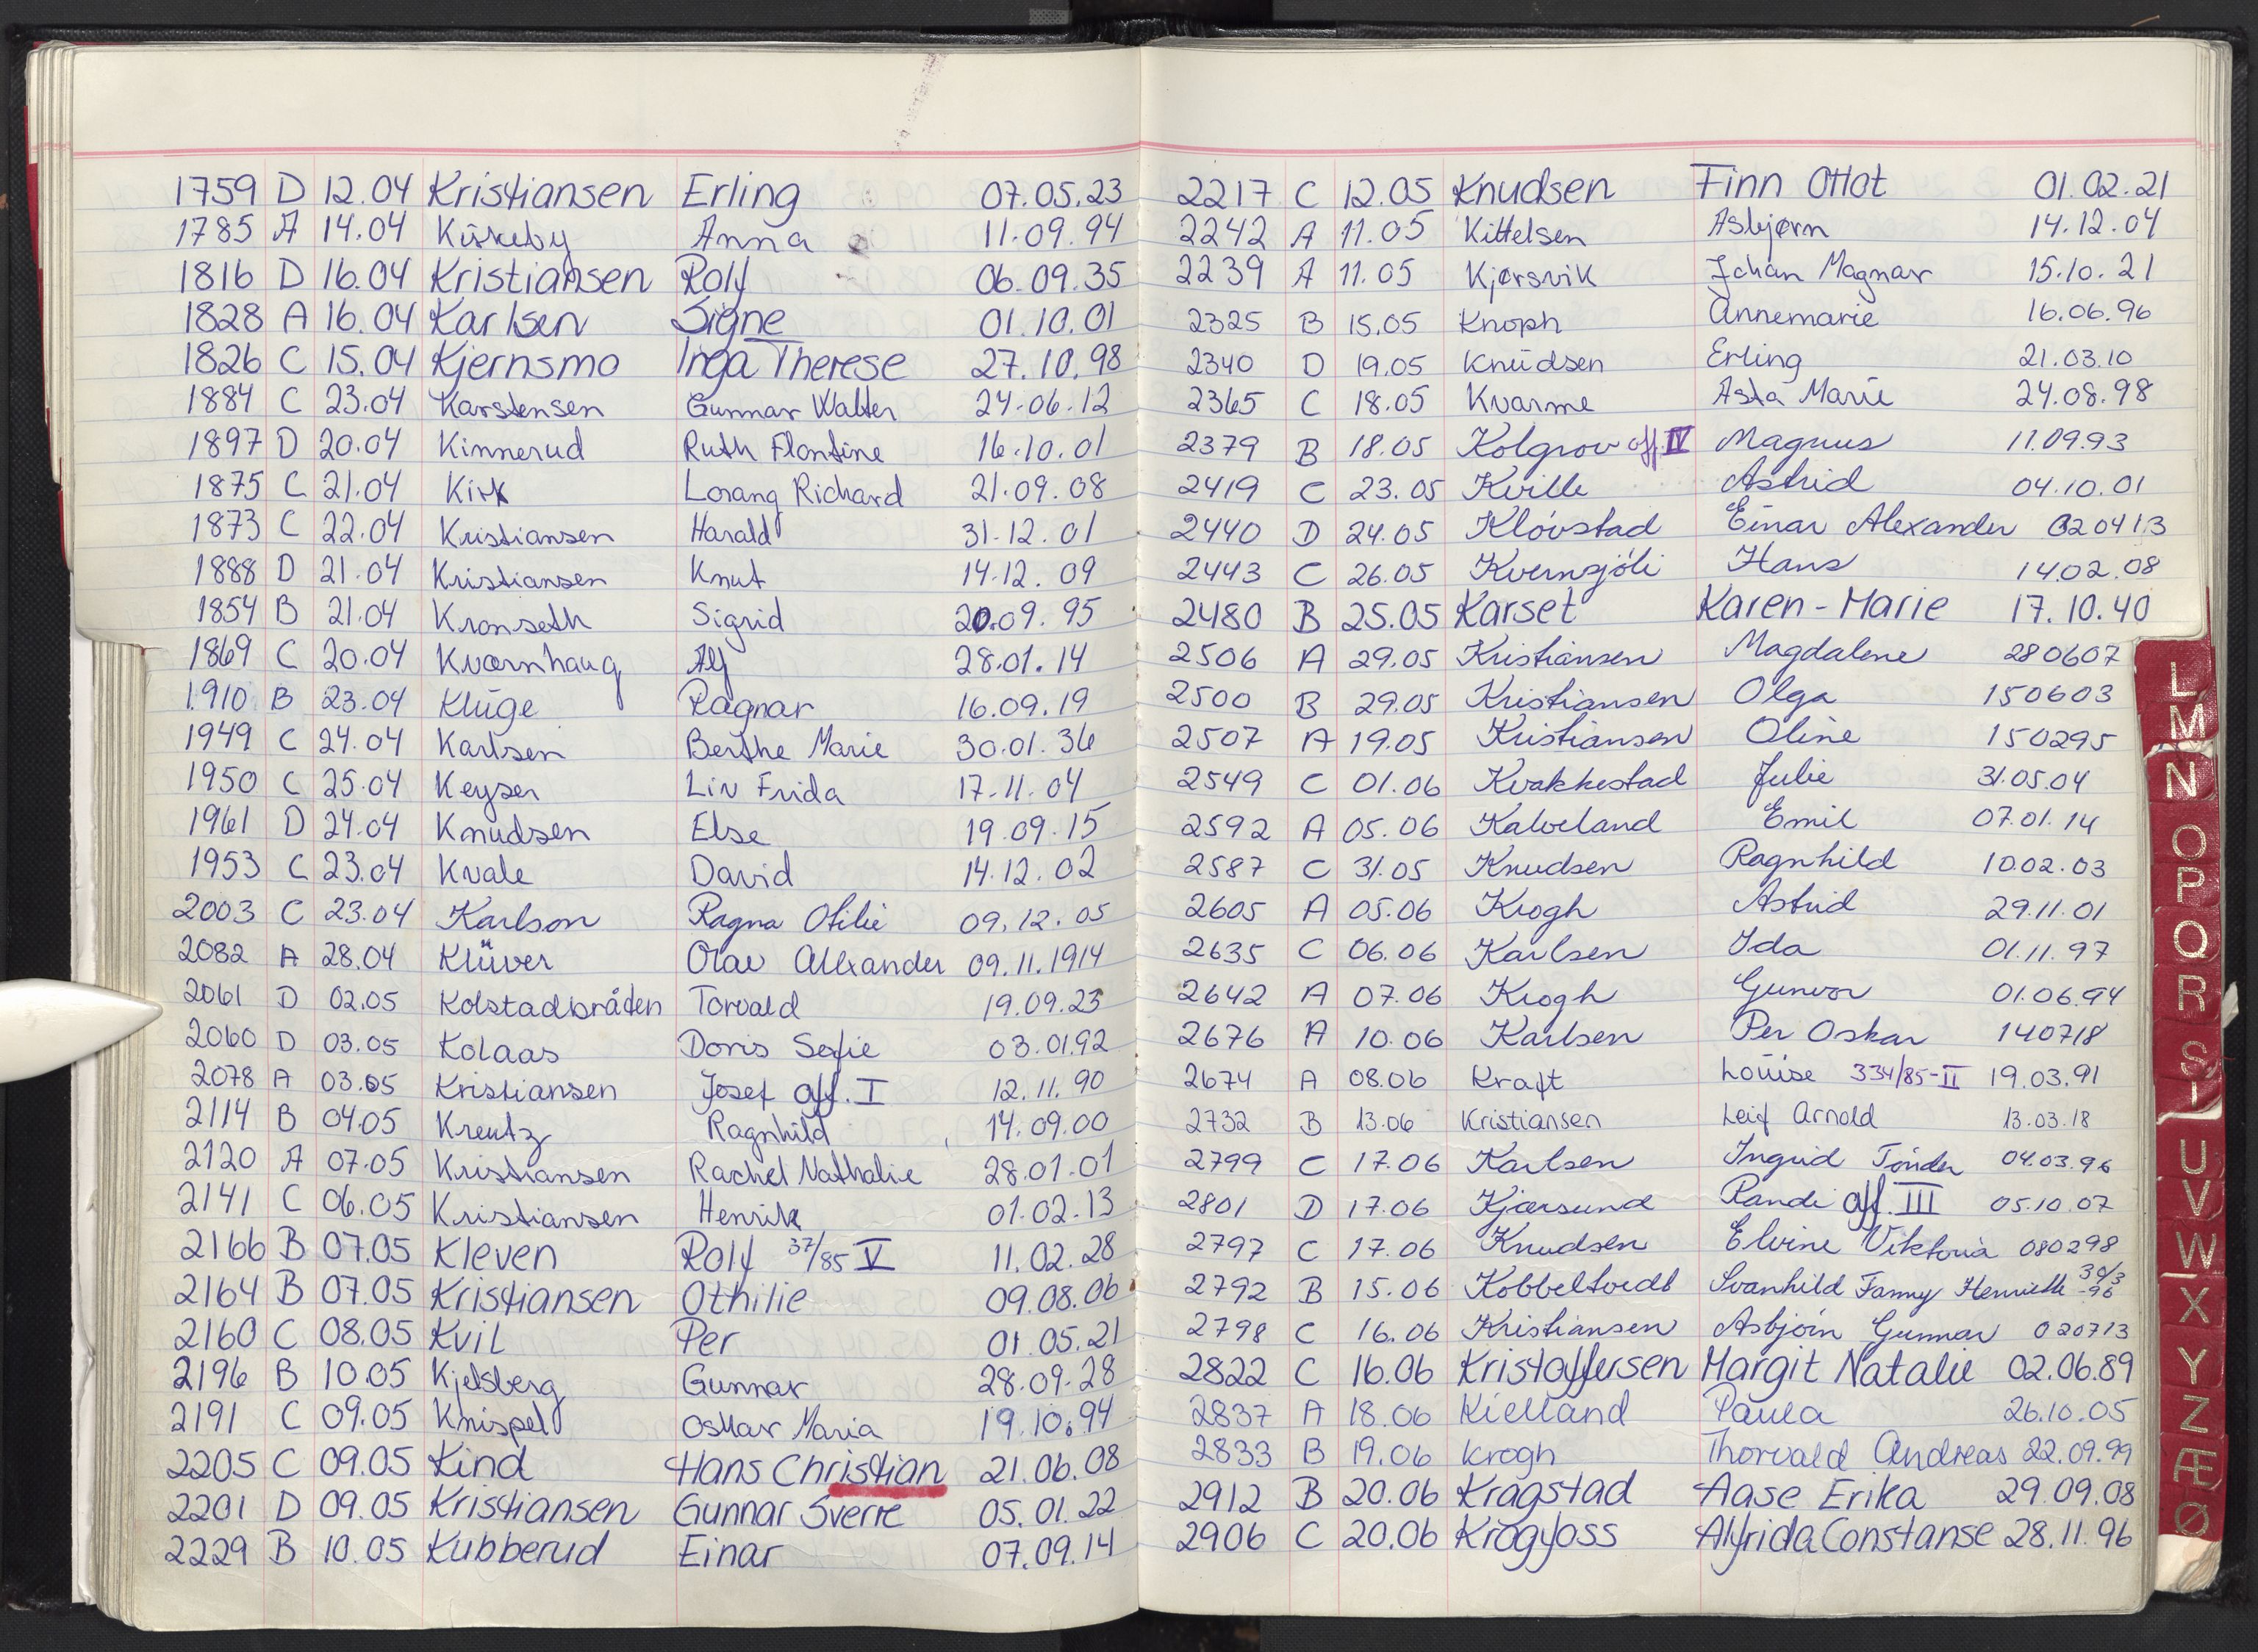 1759 D 12.04 Kristiansen Erling 07.05.23
1785 A 14.04 Kirkeby Anna 11.09.94
1816 D 16.04 Kristiansen Rolf 06.09.35
1828 A 16.04 Karlsen Signe 01.10.01
1826 C 15.04 Kjernsmo Inga Therese 27.10.98
1884 C 23.04 Karstensen Gunnar Walter 24.06.12
1897 D 20.04 Kinnerud Ruth Florentine 16.10.01
1875 C 21.04 Kirk Lorang Richard 21.09.08
1873 C 22.04 Kristiansen Harald 31.12.01
1888 D 21.04 Kristiansen Knut 14.12.09
1854 B 21.04 Kronseth Sigrid 20.09.95
1869 C 20.04 Kværnhaug Alf 28.01.14
1910 B 23.04 Kluge Ragnar 16.09.19
1949 C 24.04 Karlsen Berthe Marie 30.01.36
1950 C 25.04 Keyser Liv Frida 17.11.04
1961 D 24.04 Knudsen Else 19.09.15
1953 C 23.04 Kvale David 14.12.02
2003 C 23.04 Karlson Ragna Otilie 09.12.05
2082 A 28.04 Klüver Olav Alexander 09.11.1914
2061 D 02.05 Kolstadbråten Torvald 19.09.23
2060 D 03.05 Kolaas Doris Sofie 03.01.92
2078 A 03.05 Kristiansen Josef aff. I 12.11.90
2114 B 04.05 Kreutz Ragnhild 14.09.00
2120 A 07.05 Kristiansen Rachel Nathalie 28.01.01
2141 C 06.05 Kristiansen Henrik 01.02.13
2166 B 07.05 Kleven Rolf 37/85 V 11.02.28
2164 B 07.05 Kristiansen Othilie 09.08.06
2160 C 08.05 Kvil Per 01.05.21
2196 B 10.05 Kjelsberg Gunnar 28.09.28
2191 C 09.05 Knispel Oskar Maria 19.10.94
2205 C 09.05 Kind Hans Christian 21.06.08
2201 D 09.05 Kristiansen Gunnar Sverre 05.01.22
2229 B 10.05 Kubberud Einar 07.09.14
2217 C 12.05 Knudsen Finn Ottot 01.02.21
2242 A 11.05 Kittelsen Asbjørn 14.12.04
2239 A 11.05 Kjørsvik Johan Magnar 15.10.21
2325 B 15.05 Knoph Annemarie 16.06.96
2340 D 19.05 Knudsen Erling 21.03.10
2365 C 18.05 Kvarme Asta Marie 24.08.98
2379 B 18.05 Kolgrov aff. IV Magnus 11.09.93
2419 C 23.05 Kville Astrid 04.10.01
2440 D 24.05 Klóvstad Einar Alexander 020413
2443 C 26.05 Kvernsjóli Hans 14.02.08
2480 B 25.05 Karset Karen-Marie 17.10.40
2506 A 29.05 Kristiansen Magdalene 280607
2500 B 29.05 Kristiansen Olga 150603
2507 A 19.05 Kristiansen Oline 150295
2549 C 01.06 Kvakkestad Julie 31.05.04
2592 A 05.06 Kalveland Emil 07.01.14
2587 C 31.05 Knudsen Ragnhild 10.02.03
2605 A 05.06 Krogh Astrid 29.11.01
2635 C 06.06 Karlsen Ida 01.11.97
2642 A 07.06 Krogh Gunvor 01.06.94
2676 A 10.06 Karlsen Per Oskar 140718
2674 A 08.06 Kraft Louise 334/85-II 19.03.91
2732 B 13.06 Kristiansen Leif Arnold 13.03.18
2799 C 17.06 Karlsen Ingrid Tónder 04.03.96
2801 D 17.06 Kjærsund Randi aff. III 05.10.07
2797 C 17.06 Knudsen Elvine Viktoria 080298
2792 B 15.06 Kobbeltvedt Svanhild Fanny Henriette 30/3-96
2798 C 16.06 Kristiansen Asbjórn Gunnar 020713
2822 C 16.06 Kristoffersen Margit Natalie 02.06.89
2837 A 18.06 Kielland Paula 26.10.05
2833 B 19.06 Krogh Thorvald Andreas 22.09.99
2912 B 20.06 Kragstad Aase Erika 29.09.08
2906 C 20.06 Krogfoss Alfrida Constanse 28.11.96
L
M
N
O
P
Q
R
S
T
U
V
W
X
Y
Z
Æ
Ø